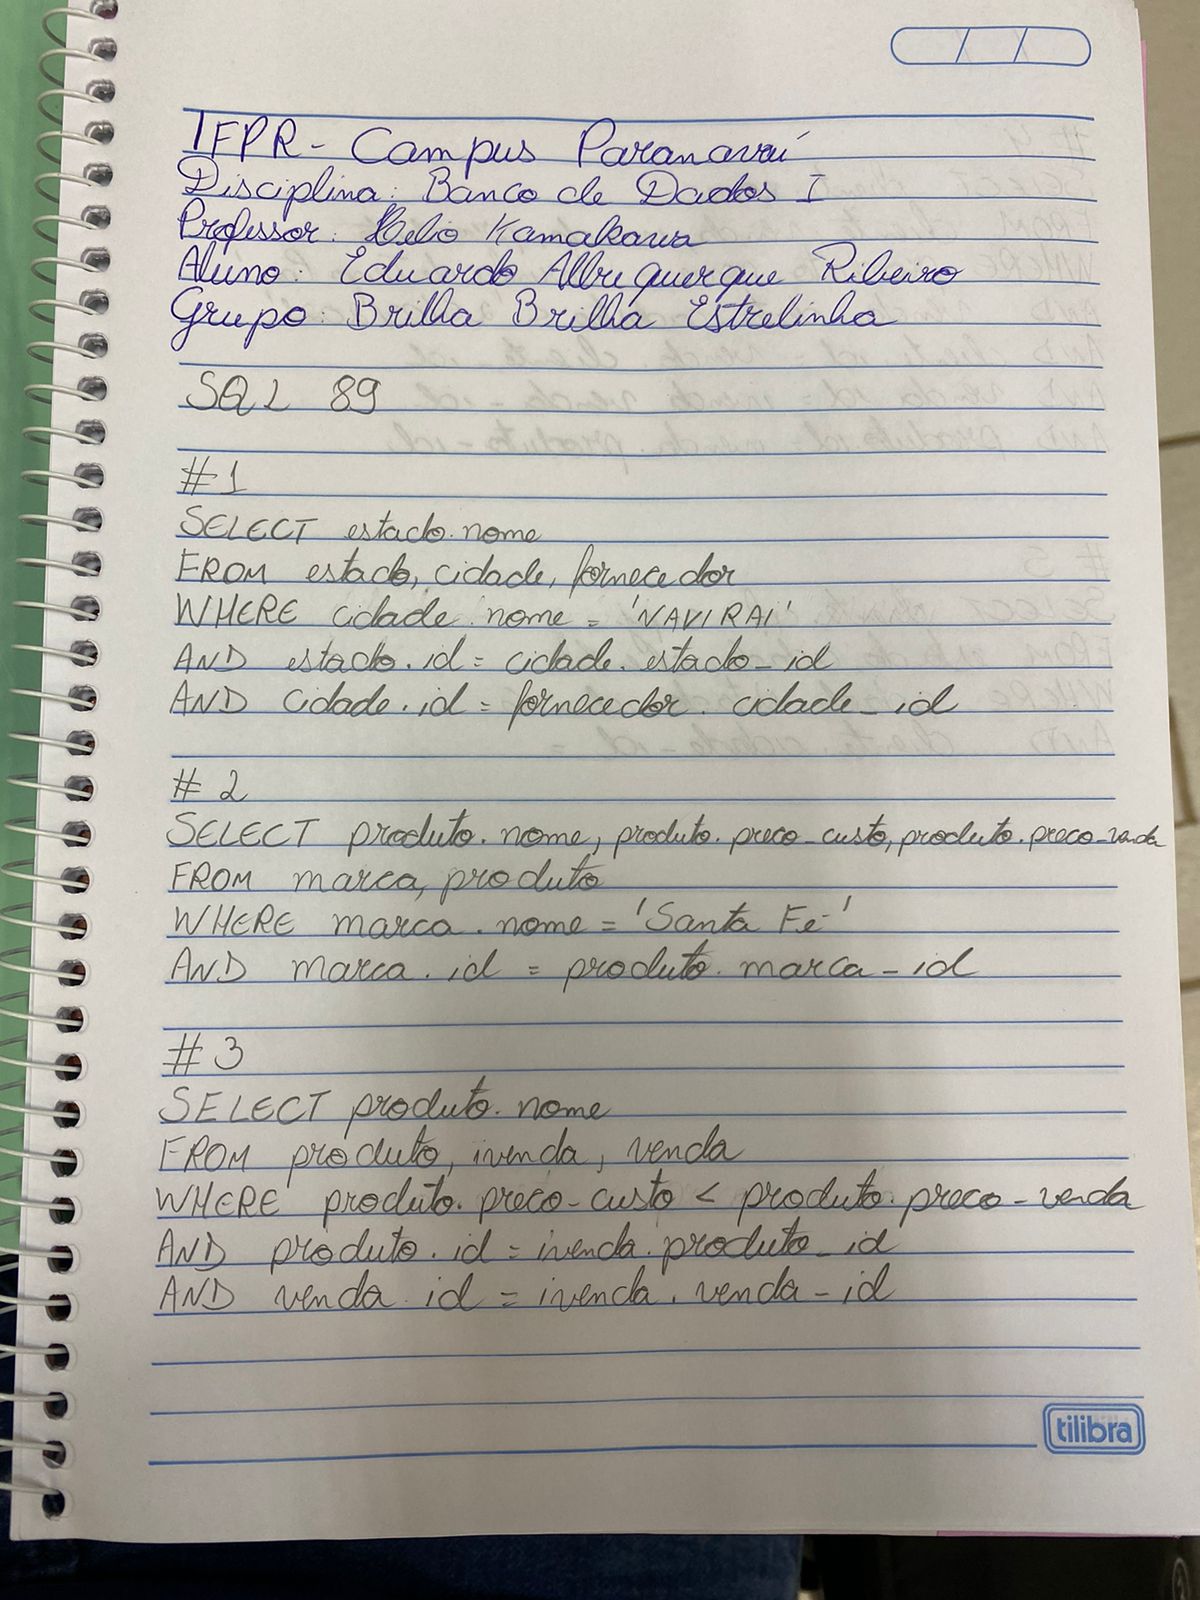 IFPR - Campus Paranavaí
Disciplina: Banco de Dados I
Professor: Helio Kamakawa
Aluno: Eduardo Albuquerque Ribeiro
Grupo: Brilha Brilha Estrelinha
SQL 89
#1
SELECT estado.nome
FROM estado, cidade, fornecedor
WHERE cidade.nome = 'NAVIRAI'
AND estado.id = cidade.estado_id
AND cidade.id = fornecedor.cidade_id
#2
SELECT produto.nome, produto.preco_custo, produto.preco_venda
FROM marca, produto
WHERE marca.nome = 'Santa Fé'
AND marca.id = produto.marca_id
#3
SELECT produto.nome
FROM produto, ivenda, venda
WHERE produto.preco_custo < produto.preco_venda
AND produto.id = ivenda.produto_id
AND venda.id = ivenda.venda_id
tilibra